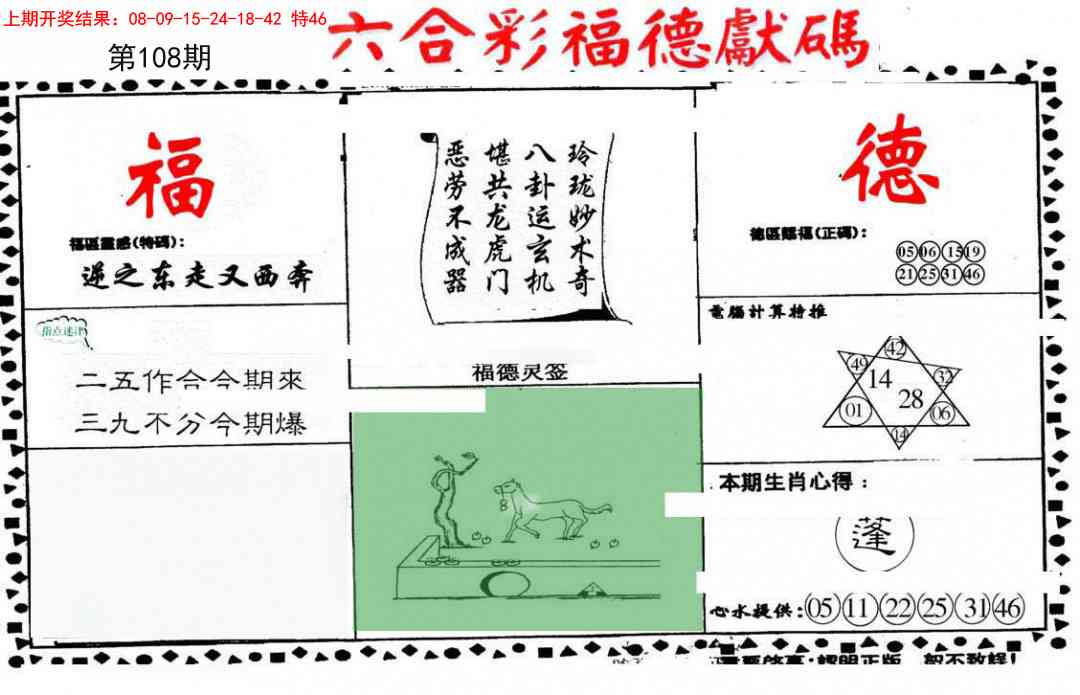 上期开奖结果：08-09-15-24-18-42 特46
第108期
六合彩福德獻碼
福
福區靈感(特碼)：
逆之东走又西奔
指点迷津
二五作合今期來
三九不分今期爆
玲珑妙术奇
八卦运玄机
堪共龙虎门
恶劳不成器
福德灵签
德
德區賜福(正碼)：
05 06 15 19
21 25 31 46
電腦計算特推
42
49 32
14
28
01 06
14
本期生肖心得：
蓬
心水提供：05 11 22 25 31 46